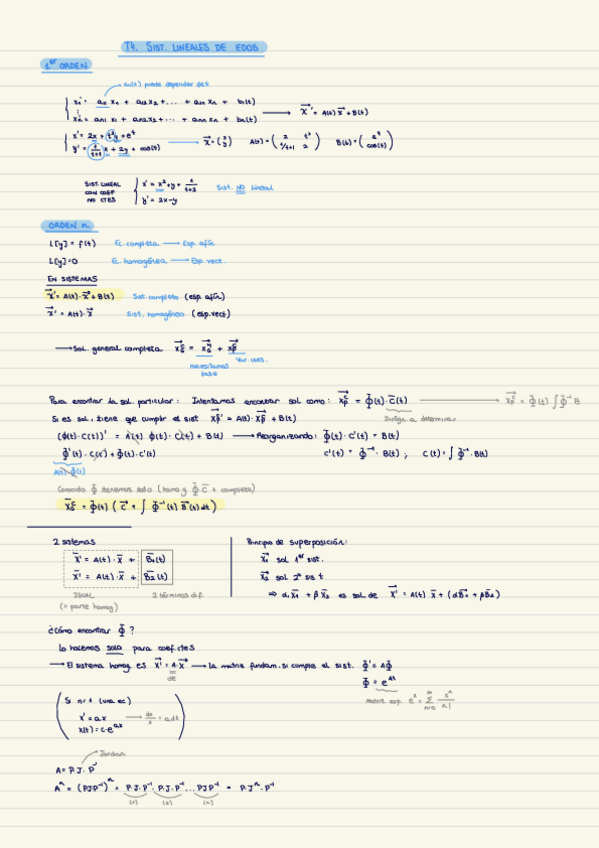 T4. SIST. LINEALES DE EDOS
1er ORDEN
a11(t) puede depender de t
x1' = a11 x1 + a12 x2 + ... + a1n xn + b1(t)
⋮
xn' = an1 x1 + an2 x2 + ... + ann xn + bn(t) → x⃗' = A(t) x⃗ + B(t)
x' = 2x + t²y + e^t
y' = 1/(t+1) x + 2y + cos(t) → x⃗ = (x y) A(t) = (2 t² 1/t+1 2) B(t) = (e^t cos(t))
SIST. LINEAL
CON COEF
NO CTES
x' = x² + y + 1/(t+2)
y' = 2x - y
Sist. NO lineal
ORDEN n
L[y] = f(t) Ec. completa → Esp. afín
L[y] = 0 Ec. homogénea → Esp. vect.
EN SISTEMAS
x⃗' = A(t) · x⃗ + B(t) Sist. completo (esp. afín)
x⃗' = A(t) · x⃗ Sist. homogéneo (esp. vect)
→ Sol. general completa
necesitamos base
Var. ctes.
Para encontrar la sol. particular: Intentamos encontrar sol como: x⃗p^c = Φ(t) · C⃗(t) → x⃗p^c = Φ(t) ∫ Φ⁻¹ B
Si es sol, tiene que cumplir el sist x⃗p^c' = A(t) · x⃗p^c + B(t)
(Φ(t) · C(t))' = A(t) Φ(t) · C(t) + B(t) → Reorganizando: Φ(t) · C'(t) = B(t)
Φ'(t) · C(t) + Φ(t) · C'(t) C'(t) = Φ⁻¹ · B(t) ; C(t) = ∫ Φ⁻¹ · B(t)
A(t) · Φ(t)
Conocido Φ tenemos todo (homo y Φ C⃗ + completa)
= Φ(t) ( C⃗ + ∫ Φ⁻¹(t) B⃗(t) dt )
2 sistemas
x⃗' = A(t) · x⃗ + B1(t)
x⃗' = A(t) · x⃗ + B2(t)
IGUAL
(= parte homog)
2 términos dif.
Principio de superposición:
x⃗1 sol 1er sist.
x⃗2 sol 2º sist
⇒ α x⃗1 + β x⃗2 es sol de x⃗' = A(t) x⃗ + (α B⃗1 + β B⃗2)
¿Cómo encontrar Φ?
Lo hacemos solo para coef. ctes
→ El sistema homog es x⃗' = A · x⃗ → La matriz fundam. si cumple el sist. Φ' = A Φ
Φ = e^At
Matriz exp. e^x = Σ n=0 ∞ x^n/n!
Si n=1 (una ec)
x' = a x → dx/x = a dt
x(t) = c · e^ax
Jordan
A = P · J · P⁻¹
A^n = (PJP⁻¹)^n = P · J · P⁻¹ · P · J · P⁻¹ ... P J P⁻¹ = P · J^n · P⁻¹
(1) (2) (n)